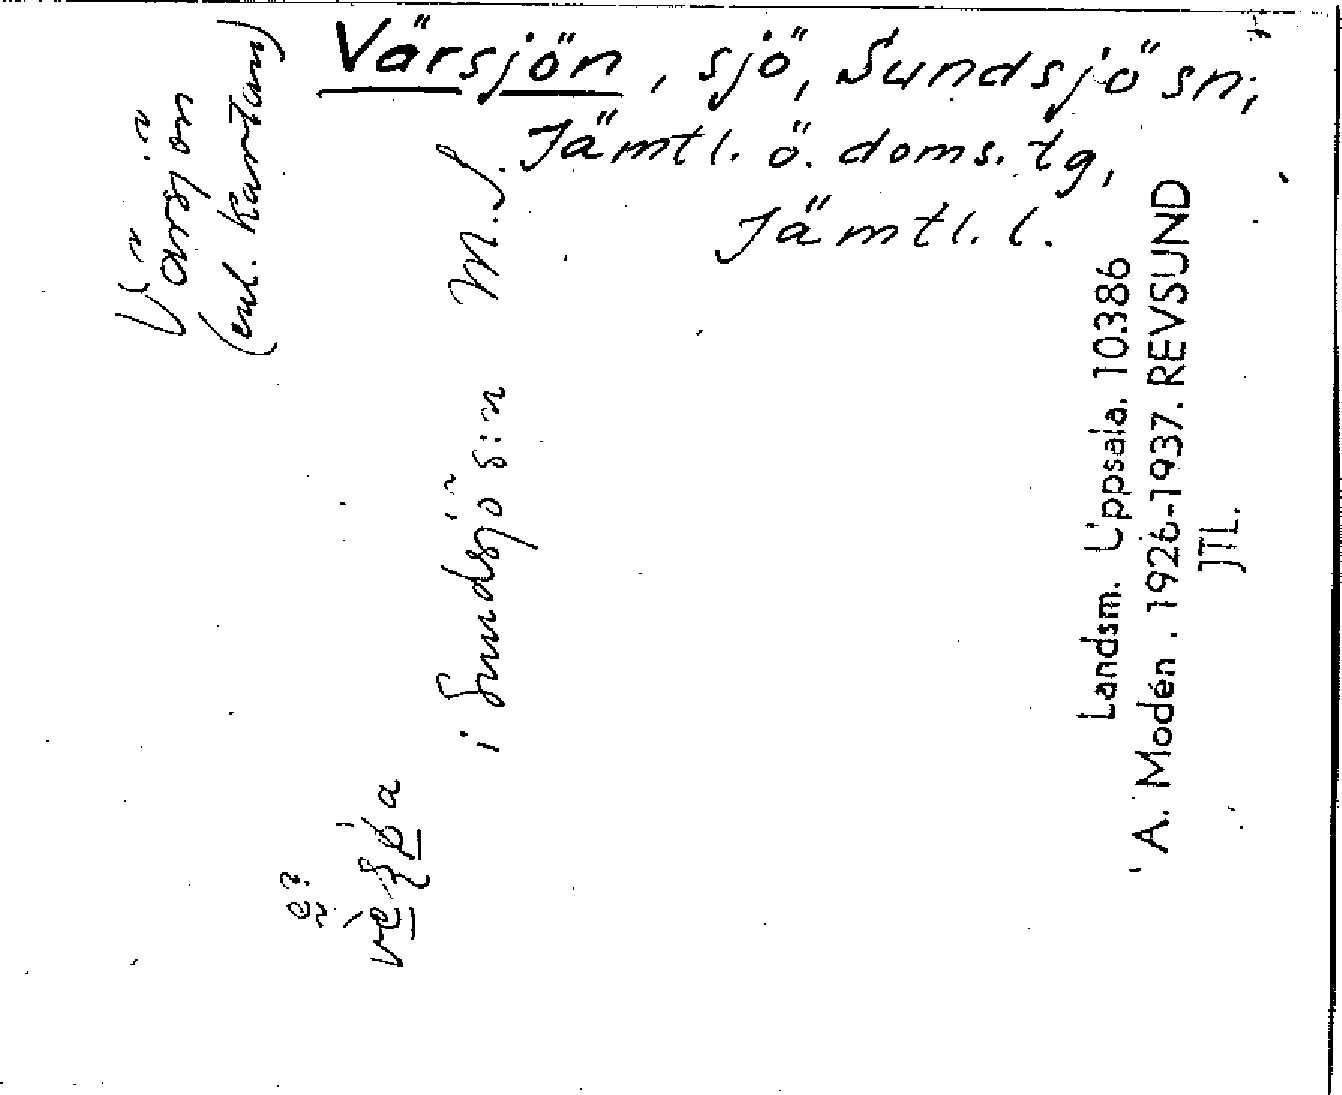 Värsjön, sjö, Sundsjö sn,
Jämtl. ö. doms. tg,
Jämtl. l.
Värsjön
(enl. kartan)
e?
i Sundsjö s:n M. S.
Landsm. Uppsala. 10386
A. Modén. 1926-1937. REVSUND
JTL.